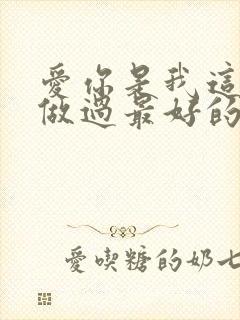 愛你是我這
做過最好的
愛喫糖的奶七